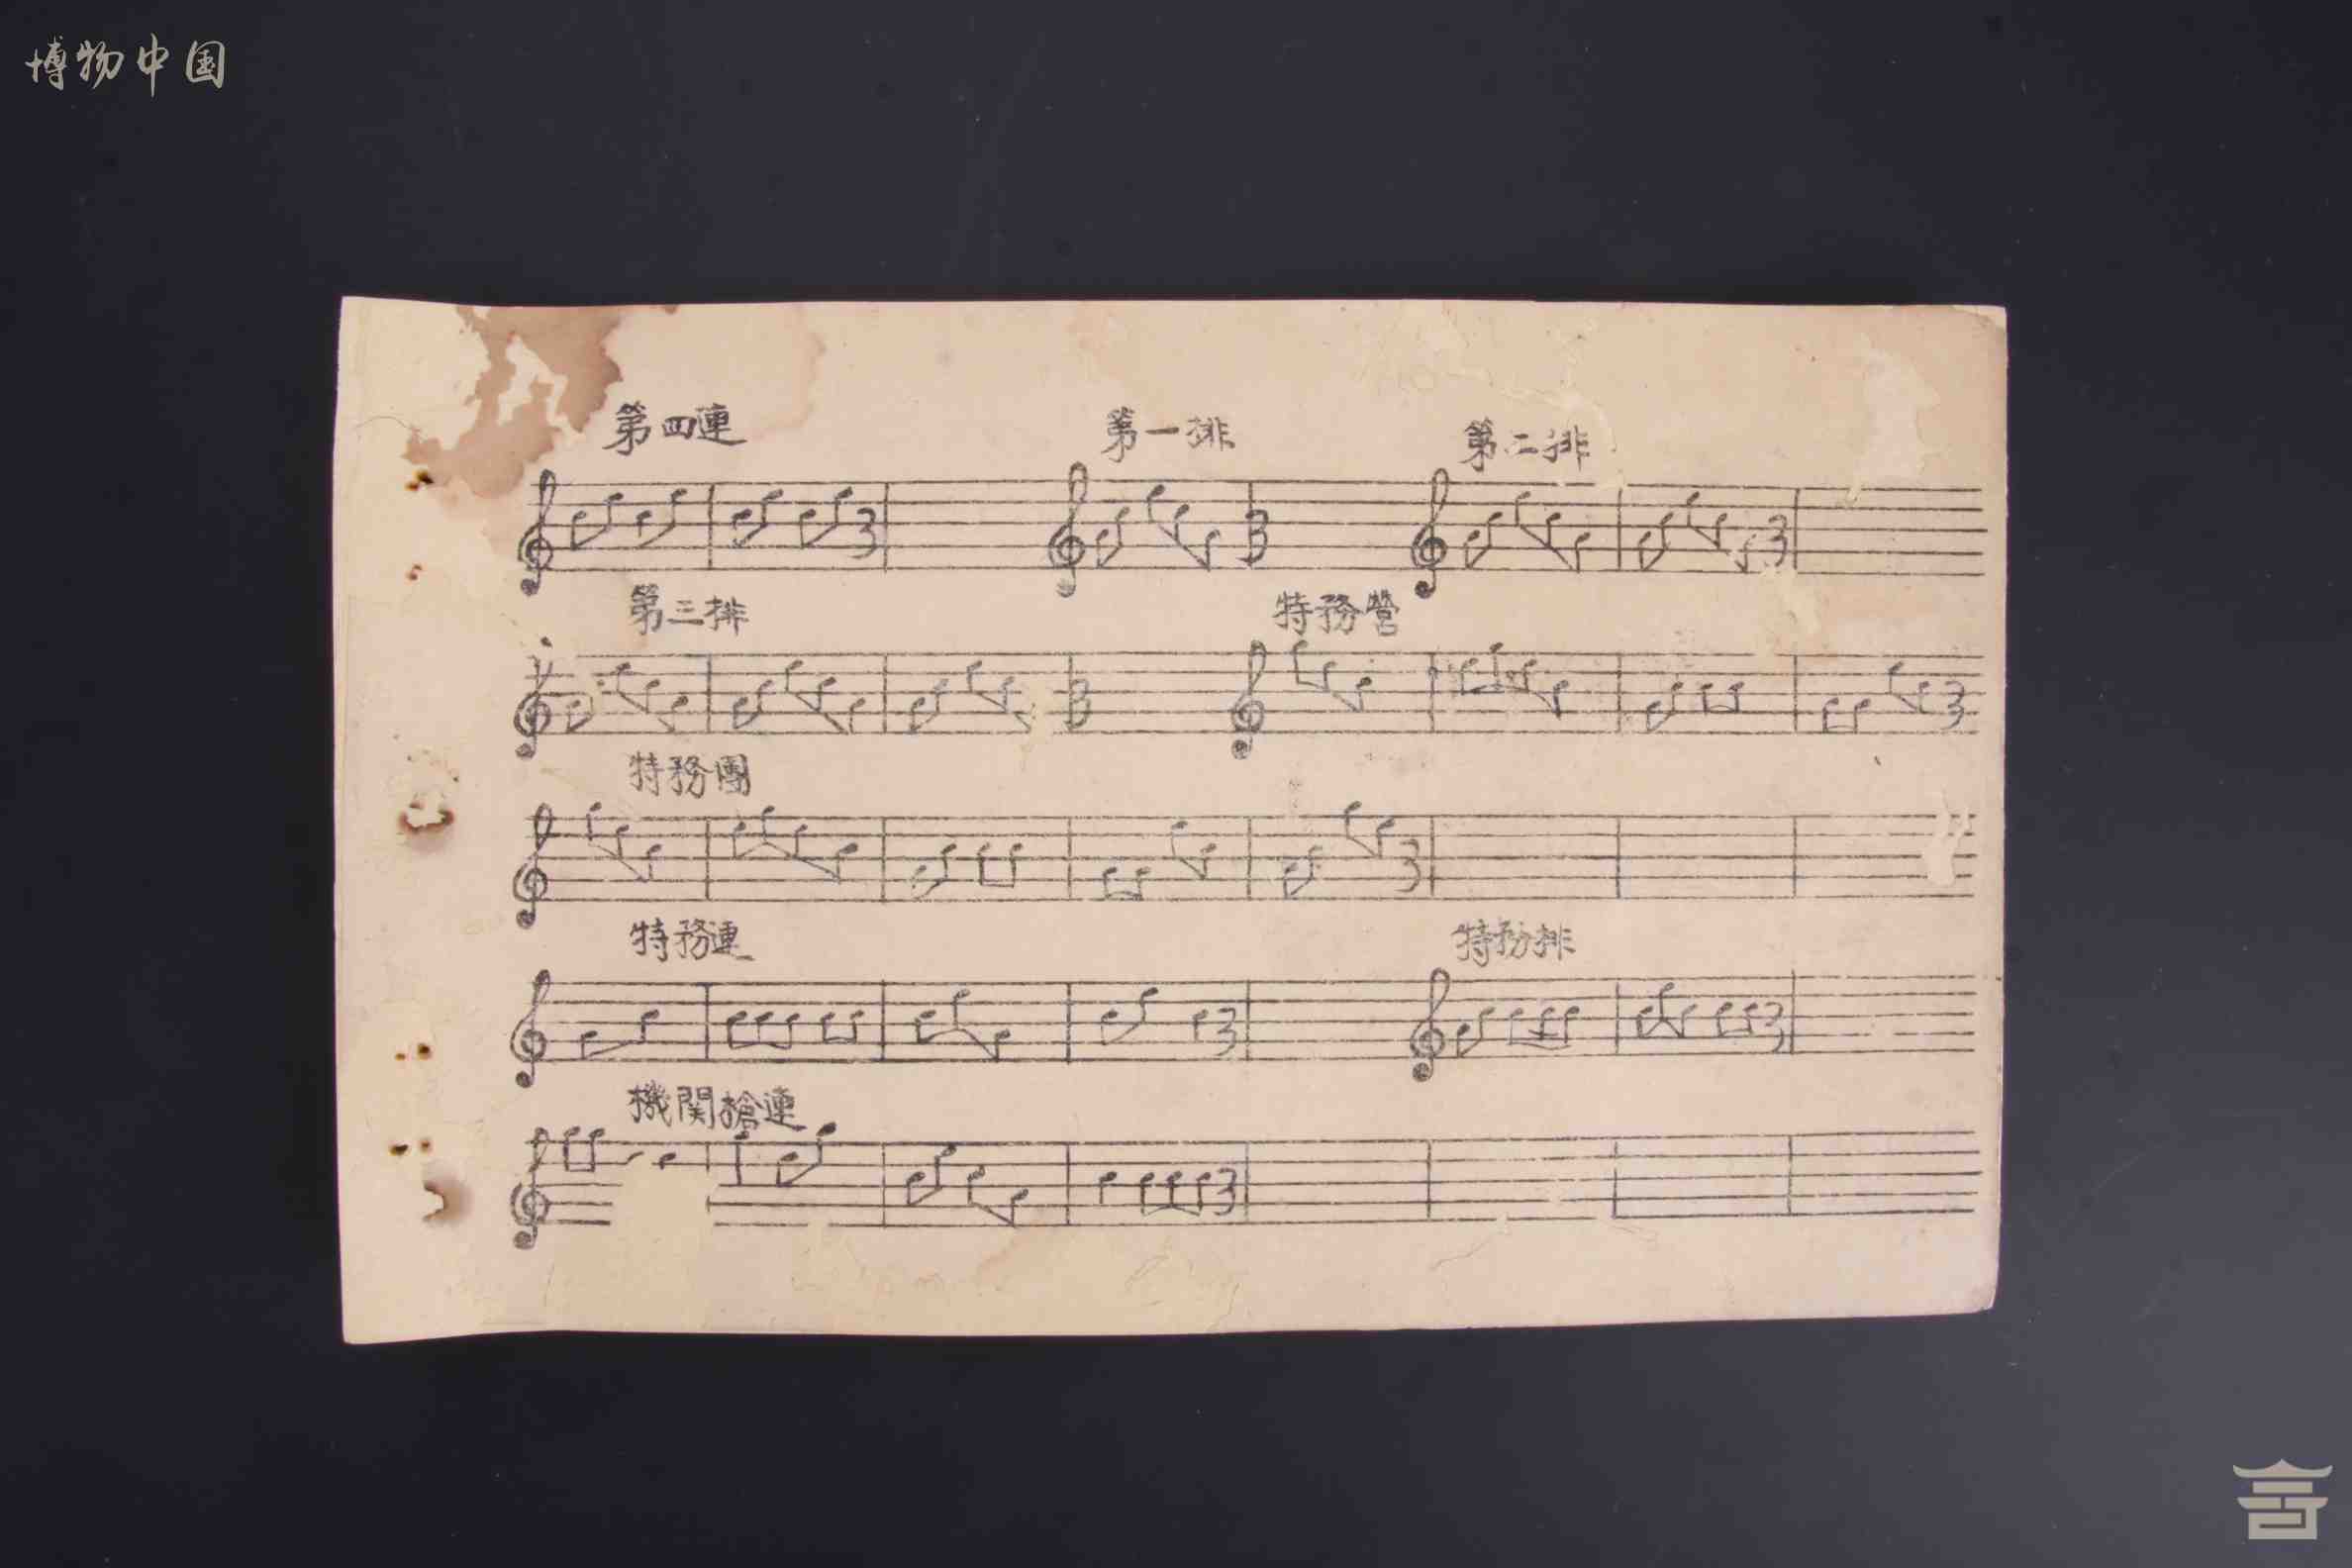 博物中国
第四連 第一排 第二排
第三排 特務營
特務團
特務連 特務排
機関槍連